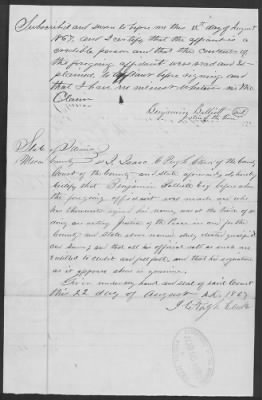 Subscribed and sworn to before me this 15th day of August
1867, and I certify that the affiant is a
credible person and that the contents of
the forgoing affidavit was read and ex-
plained, to affiant before signing and
that I have no interest whatever in the
Claim
Benjamin
Justice of the Peace
State of Illinois
Macon County I Isaac C Pugh Clerk of the County
Court of the County and State aforesaid do hereby
Certify that Benjamin Esq before whom
the forgoing affidavit was made and who
has thereunto signed his name, was at the time of so
doing an acting Justice of the Peace in and for the
County and State above named duly elected qualified
and sworn, and that all his official acts as such are
entitled to credit and full faith, and that his signature
as it appears above is genuine.
Given under my hand and seal of said Court
this 22 day of August A.D. 1867
I. C. Pugh Clerk